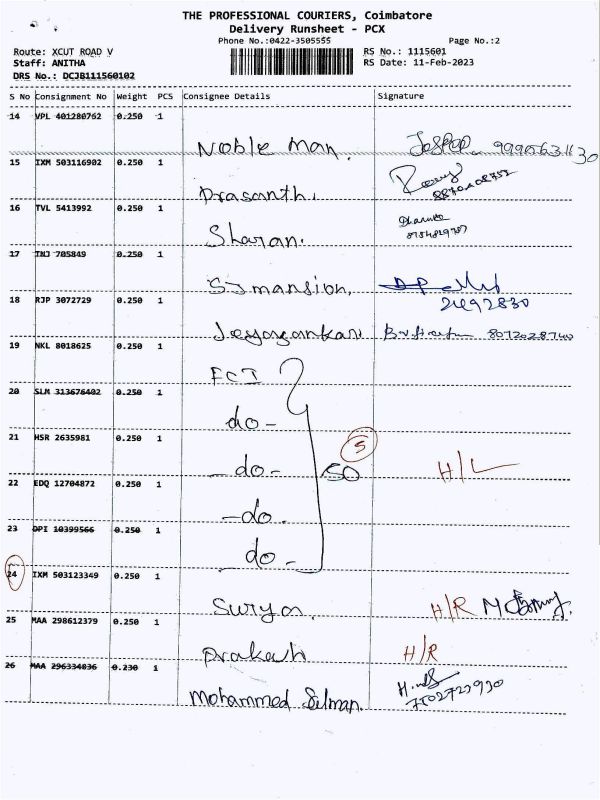 THE PROFESSIONAL COURIERS, Coimbatore
Delivery Runsheet - PCX
Phone No.:0422-3505555 Page No.:2
Route: XCUT ROAD V RS No.: 1115601
Staff: ANITHA RS Date: 11-Feb-2023
DRS No.: DCJB111560102
S No Consignment No Weight PCS Consignee Details Signature
14 VPL 401280762 0.250 1
Noble Man.
15 IXM 503116902 0.250 1
Prasanth.
16 TVL 5413992 0.250 1
Sharan.
17 TNJ 705849 0.250 1
SJ mansion.
18 RJP 3072729 0.250 1 2492830
Jeyasankari
19 NKL 8018625 0.250 1
FCI
20 SLM 313676402 0.250 1
do-
21 HSR 2635981 0.250 1 5
-do- SO H/L
22 EDQ 12704872 0.250 1
-do.
23 DPI 10399566 0.250 1
do-
24 IXM 503123349 0.250 1
Surya. H/R
25 MAA 298612379 0.250 1
Prakash H/R
26 MAA 296334036 0.230 1
Mohammed Salman.